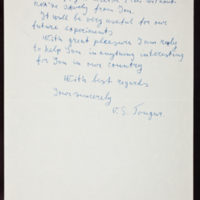 from You
It will be very useful for our
future experiments
With great pleasure I am ready
to help You in anything interesting
for You in our country
With best regards
Yours sincerely